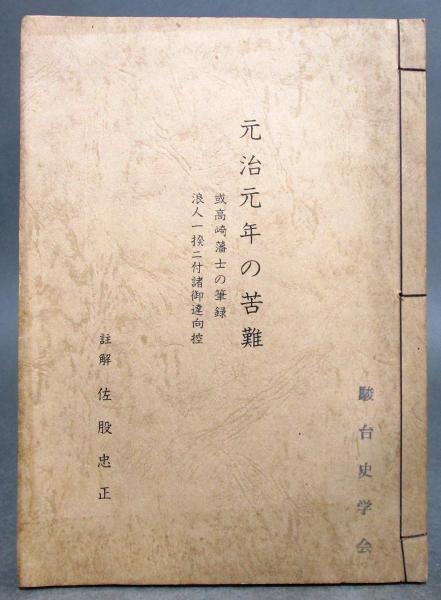 元治元年の苦難
或高崎藩士の筆録
浪人一揆ニ付諸御達向控
註解 佐股忠正
駿台史学会